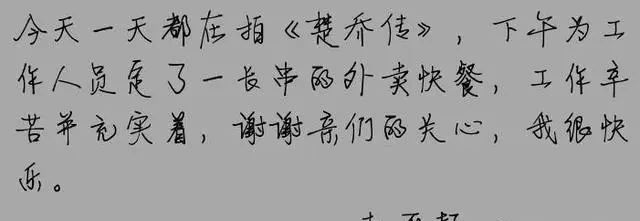 今天一天都在拍《楚乔传》，下午为工
作人员定了一长串的外卖快餐，工作辛
苦并充实着，谢谢亲们的关心，我很快
乐。